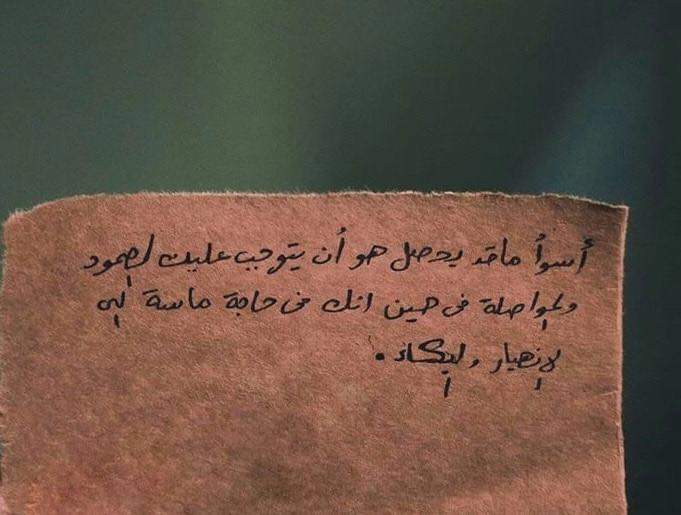 أسوأ ماقد يحصل هو أن يتوجب عليك الصمود
والمواصلة في حين انك في حاجة ماسة إلى
الإنهيار والبكاء .